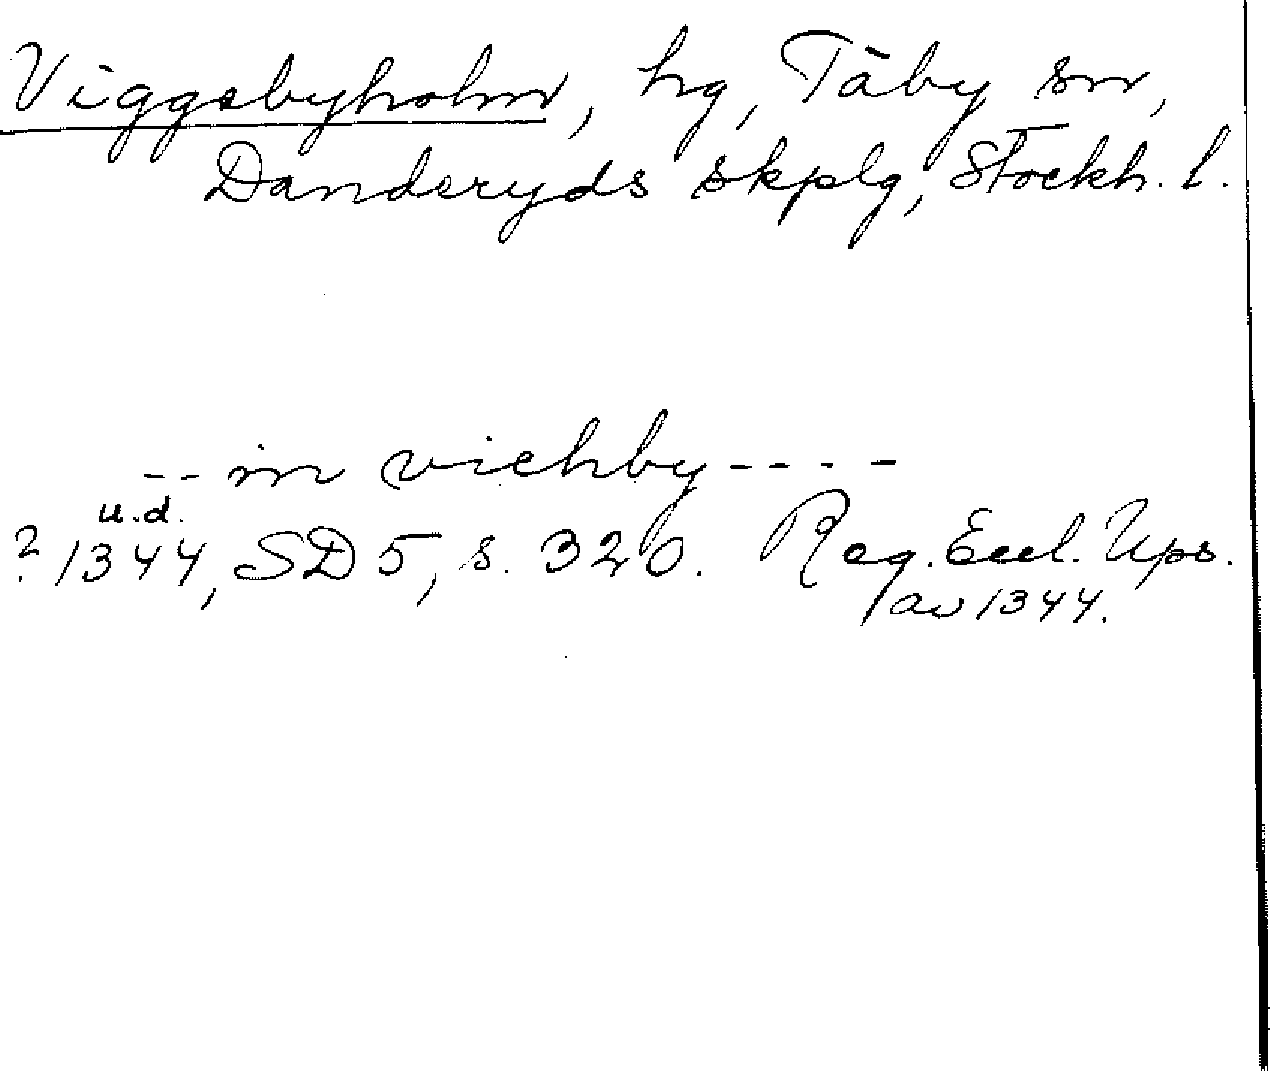 Viggsbyholm, hg, Täby sn,
Danderyds skplg, Stockh. l.
-- in vichby ----
u.d.
? 1344, SD 5, s. 320. Reg. Eccl. Ups.
av 1344.